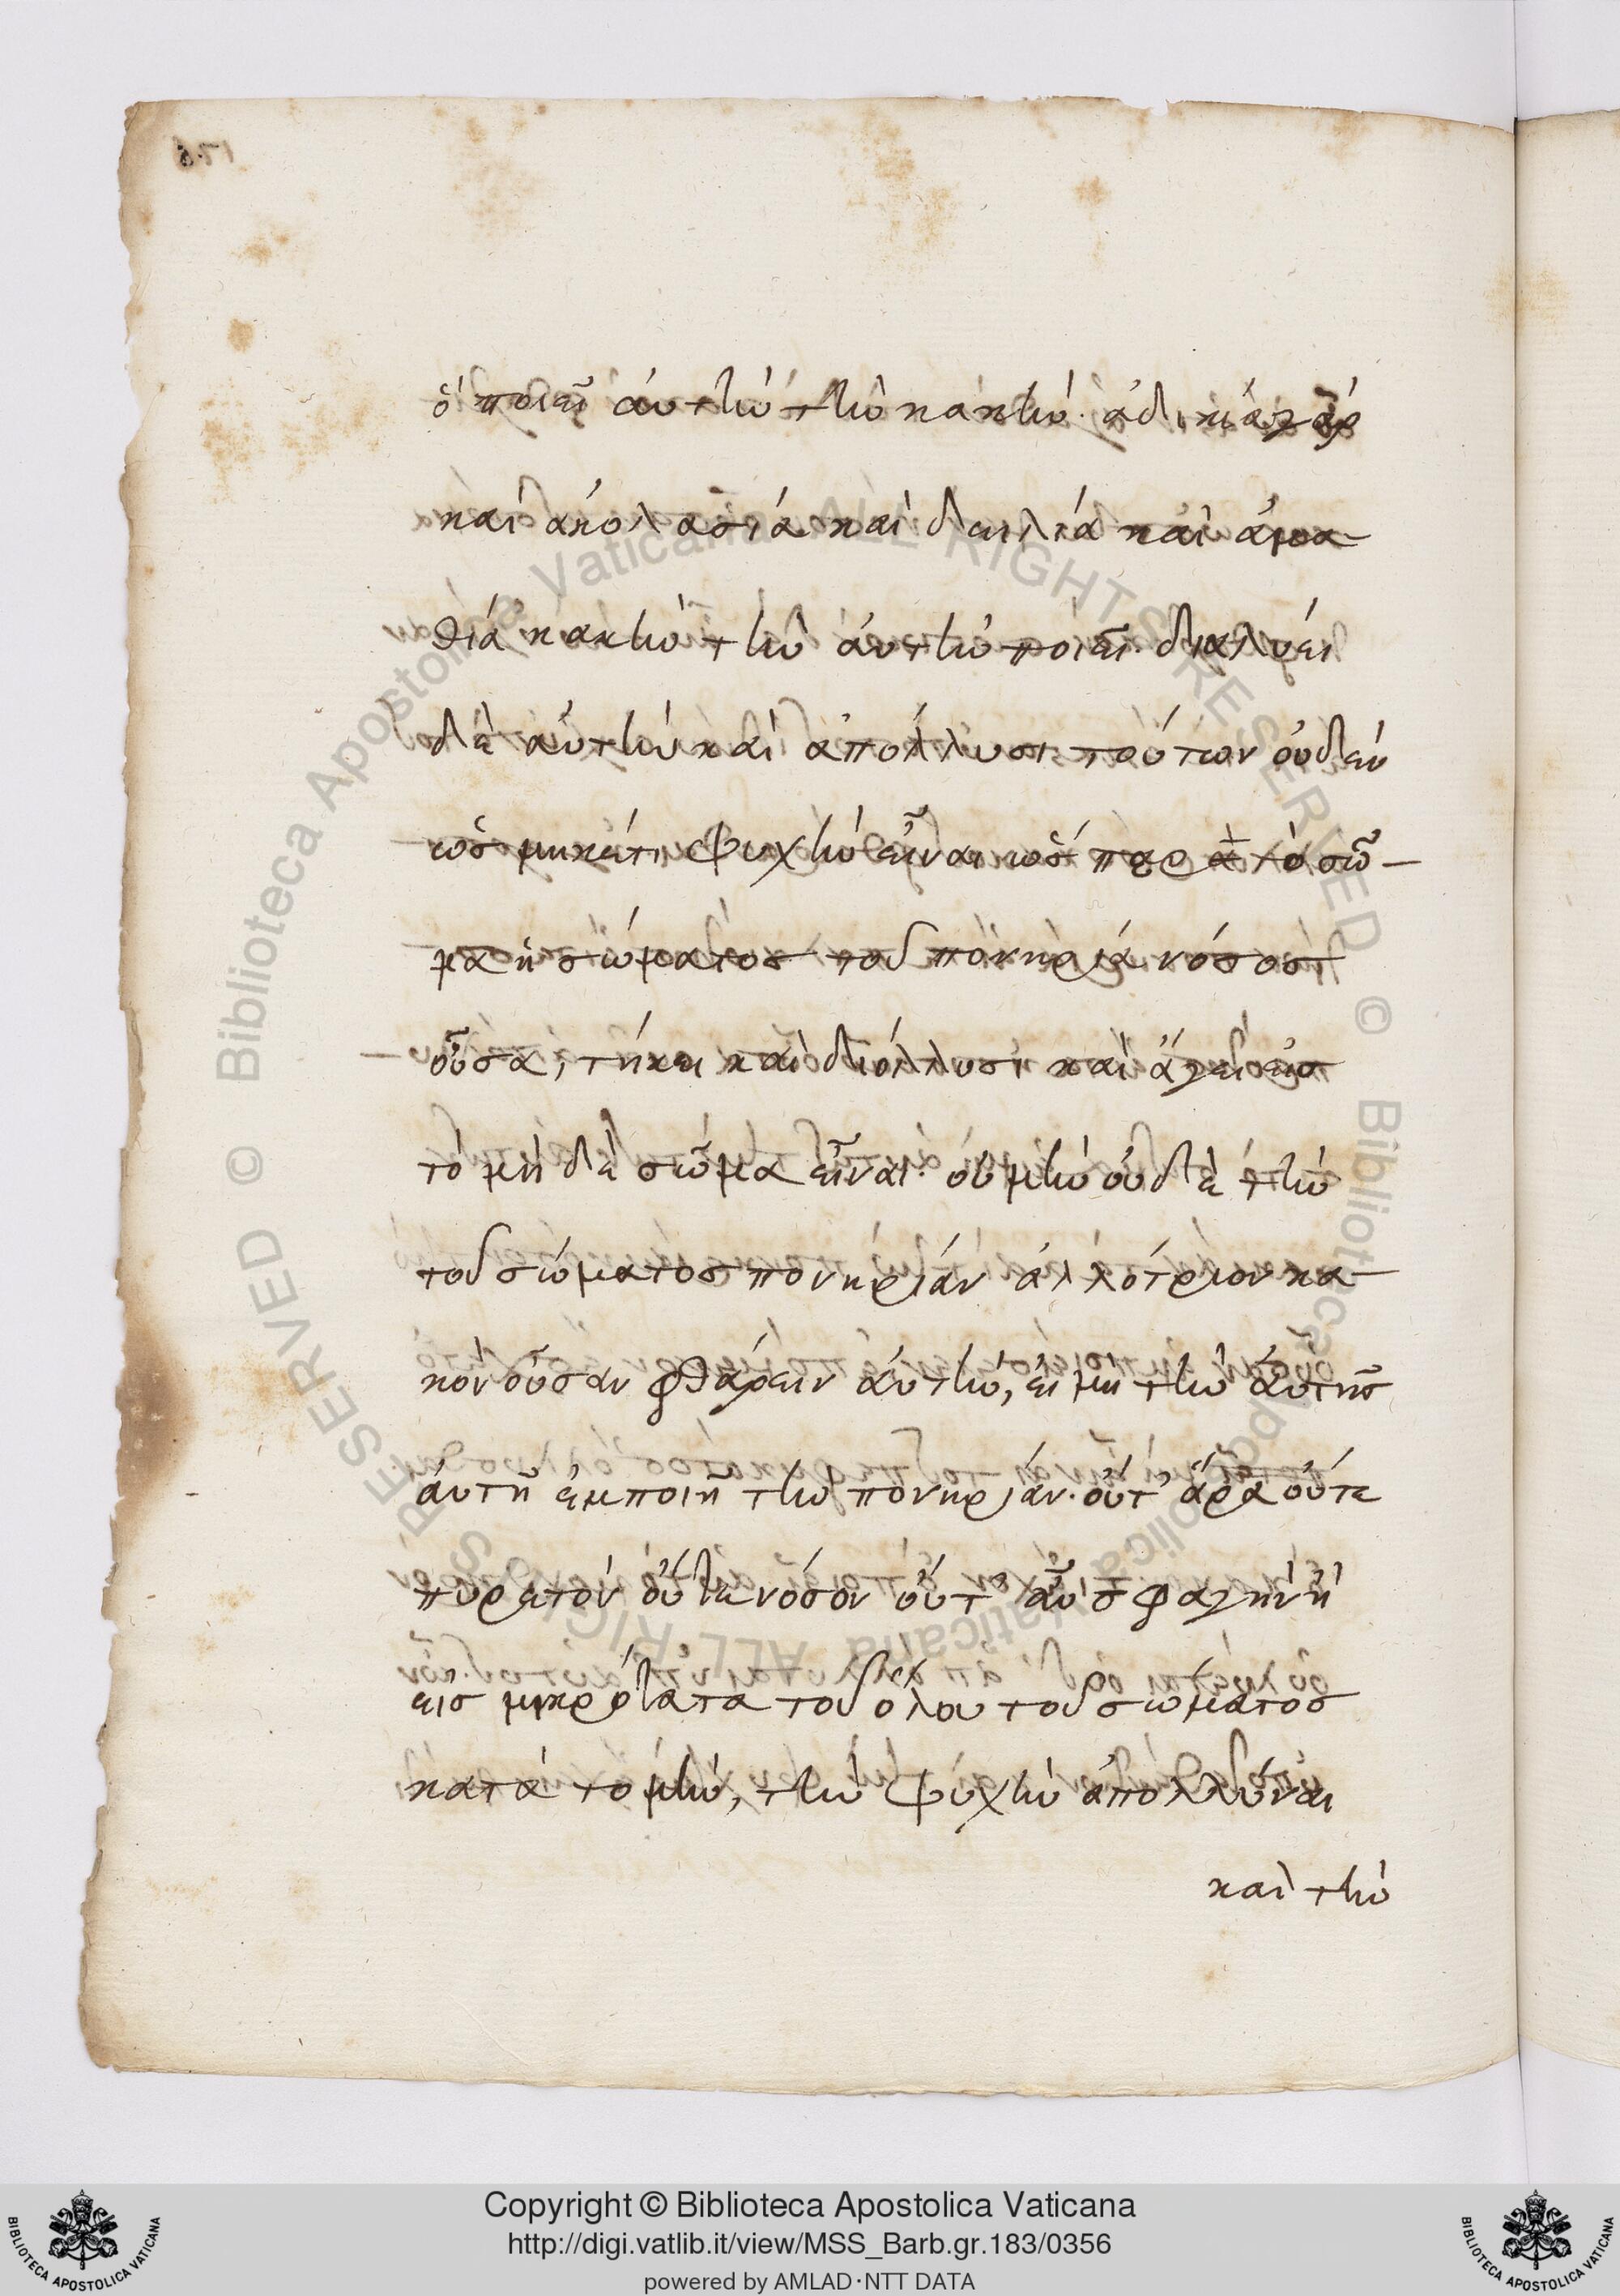 ὅ ποιεῖ ἀυτὴν τὴν κακήν. ἀδικία γὰρ
καὶ ἀκολασία καὶ δειλία καὶ ἀμα-
θία κακὴν τὴν ἀυτὴν ποιεῖ. διαλύει
δὲ αὐτὴν καὶ ἀπόλλυσι τούτων οὐδὲν
ὡς μηκέτι ψυχὴν εἶναι ὡς παρὰ τὸ σῶ-
μα ἡ σώματος τοῦ πονηρία νόσοσ
οὖσα, τήκει καὶ διόλλυσι καὶ ἄγει εἰσ
τὸ μὴ δὲ σῶμα εἶναι. οὐ μὴν οὐδὲ τὴν
τοῦ σώματοσ πονηρίαν ἀλλότριον κα-
κὸν οὖσαν φθείρειν ἀυτὴν, εἰ μὴ τὴν ἀυτῆσ
ἀυτῇ ἐμποιῇ τὴν πονηρίαν. οὔτ' ἄρα οὔτε
πυρετὸν οὔτε νόσον οὔτ' αὖ σφαγὴν ἢ
εἰσ μικρότατα τοῦ ὅλου τοῦ σώματοσ
κατὰ τομὴν, τὴν ψύχὴν ἀπολλύναι
καὶ τὴν
Copyright © Biblioteca Apostolica Vaticana
http://digi.vatlib.it/view/MSS_Barb.gr.183/0356
powered by AMLAD·NTT DATA